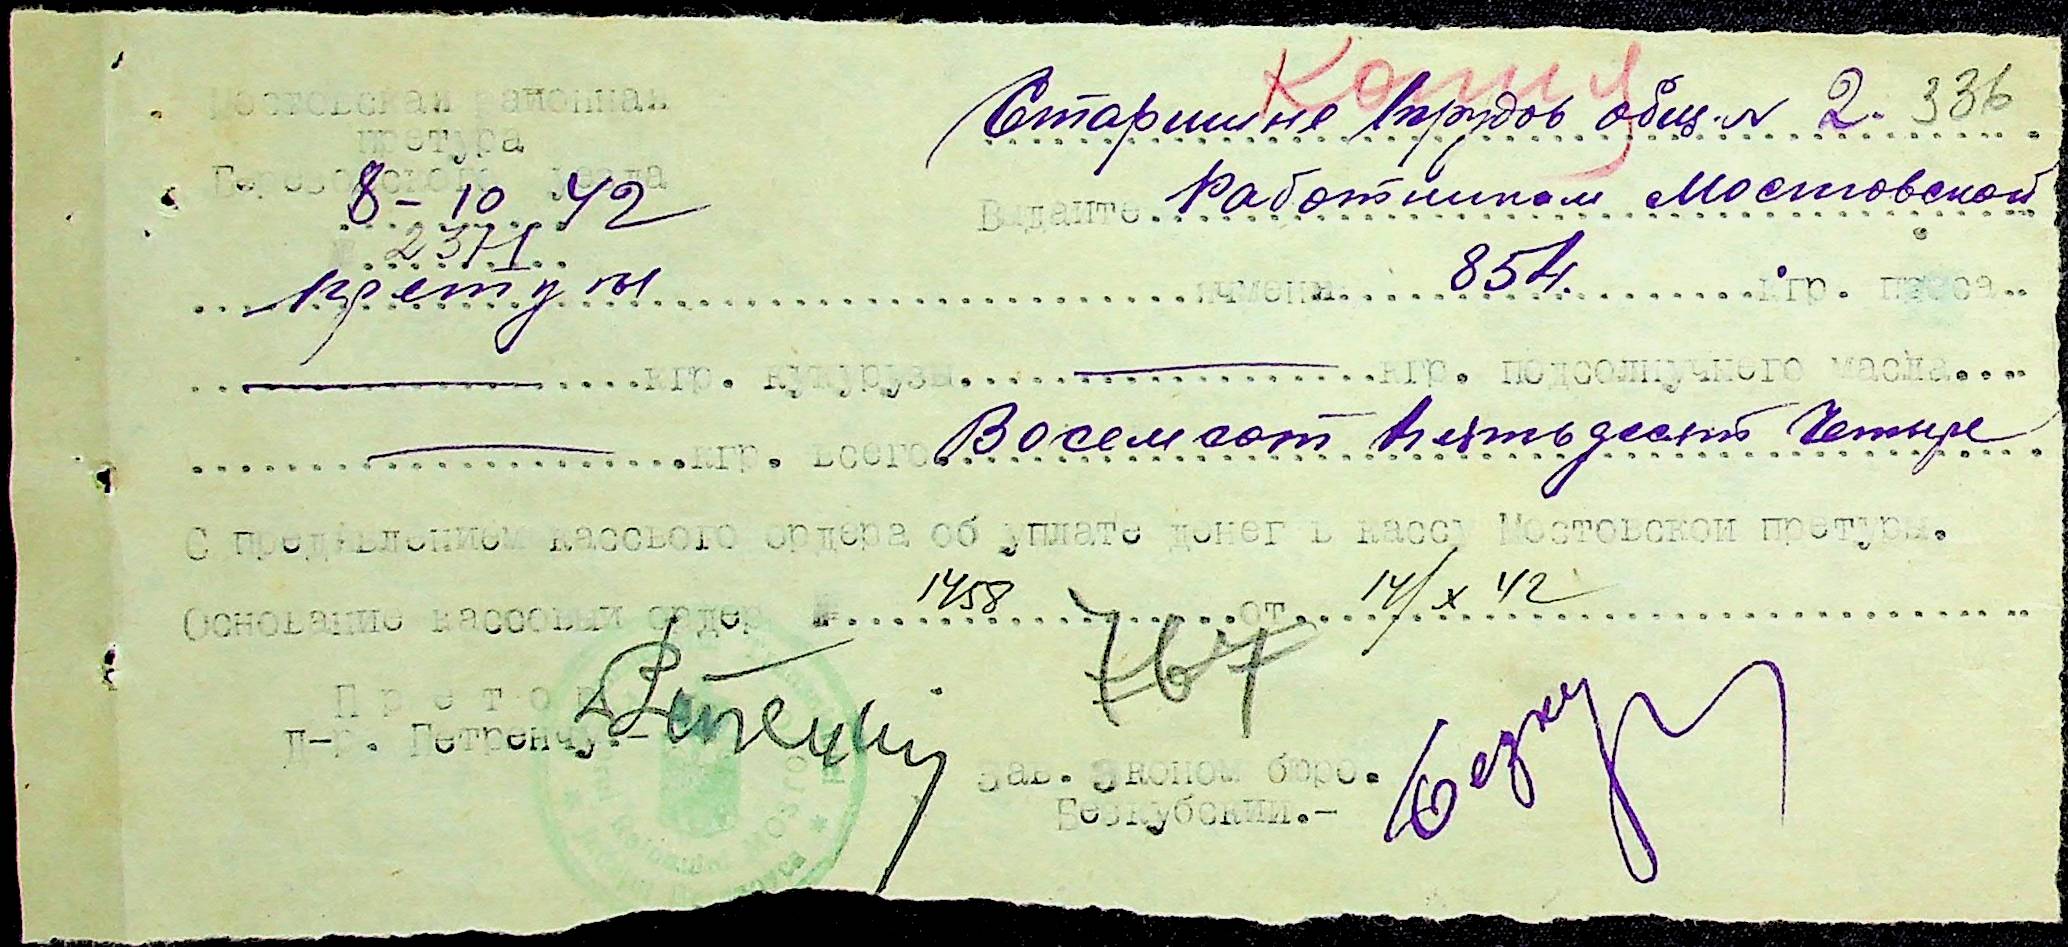 Копия
Мостовская районная
претура
Березовского уезда
8-10 42
№ 2371
Старшине трудов общ. № 2. 336
Выдайте Работникам Мостовской
претуры ячменя 854. кгр. проса
кгр. кукурузы кгр. подсолнучного масла
кгр. всего Восемсот пятьдесят четыре
С предъвлением кассового ордера об уплате денег в кассу Мостовской претуры.
Основание кассовый ордер № 1458 от 14/X 42
767
Претор
Д-р. Петренчу.-
Зав. Эконом бюро.
Безкубский.-